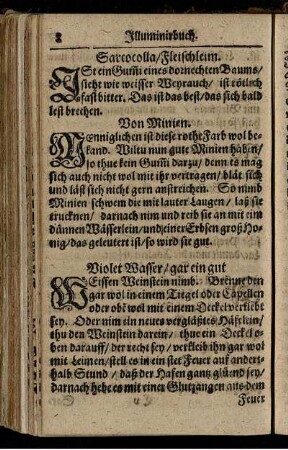 8 Illuminirbuch.
Sarcocolla / Fleischleim.
ISt ein Gum̃i eines dornechten Baums /
sieht wie weisser Weyrauch / ist rötlich
fast bitter. Das ist das best / das sich bald
lest brechen.
Von Minien.
MEnniglichen ist diese rothe Farb wol be-
kand. Wiltu nun gute Minien haben /
so thue kein Gum̃i darzu / denn es mag
sich auch nicht wol mit ihr vertragen / blät sich
und läst sich nicht gern anstreichen. So nimb
Minien schwem die mit lauter Laugen / laß sie
trucknen / darnach nim und reib sie an mit eim
dünnen Wässerlein / und einer Erbsen groß Ho-
nig / das geleutert ist / so wird sie gut.
Violet Wasser / gar ein gut
WEissen Weinstein nimb. Brenne den
gar wol in einem Tiegel oder Capellen
oder obs wol mit einem Deckel verklebt
sey. Oder nim ein neues verglästes Häfflein /
thu den Weinstein darein / thue ein Deckel o-
ben darauff / der recht sey / verkleib ihn gar wol
mit Leimen / stell es in ein stet Feuer auf andert-
halb Stund / daß der Hafen gantz glüend sey /
darnach hebe es mit einer Glutzangen aus dem
Feuer